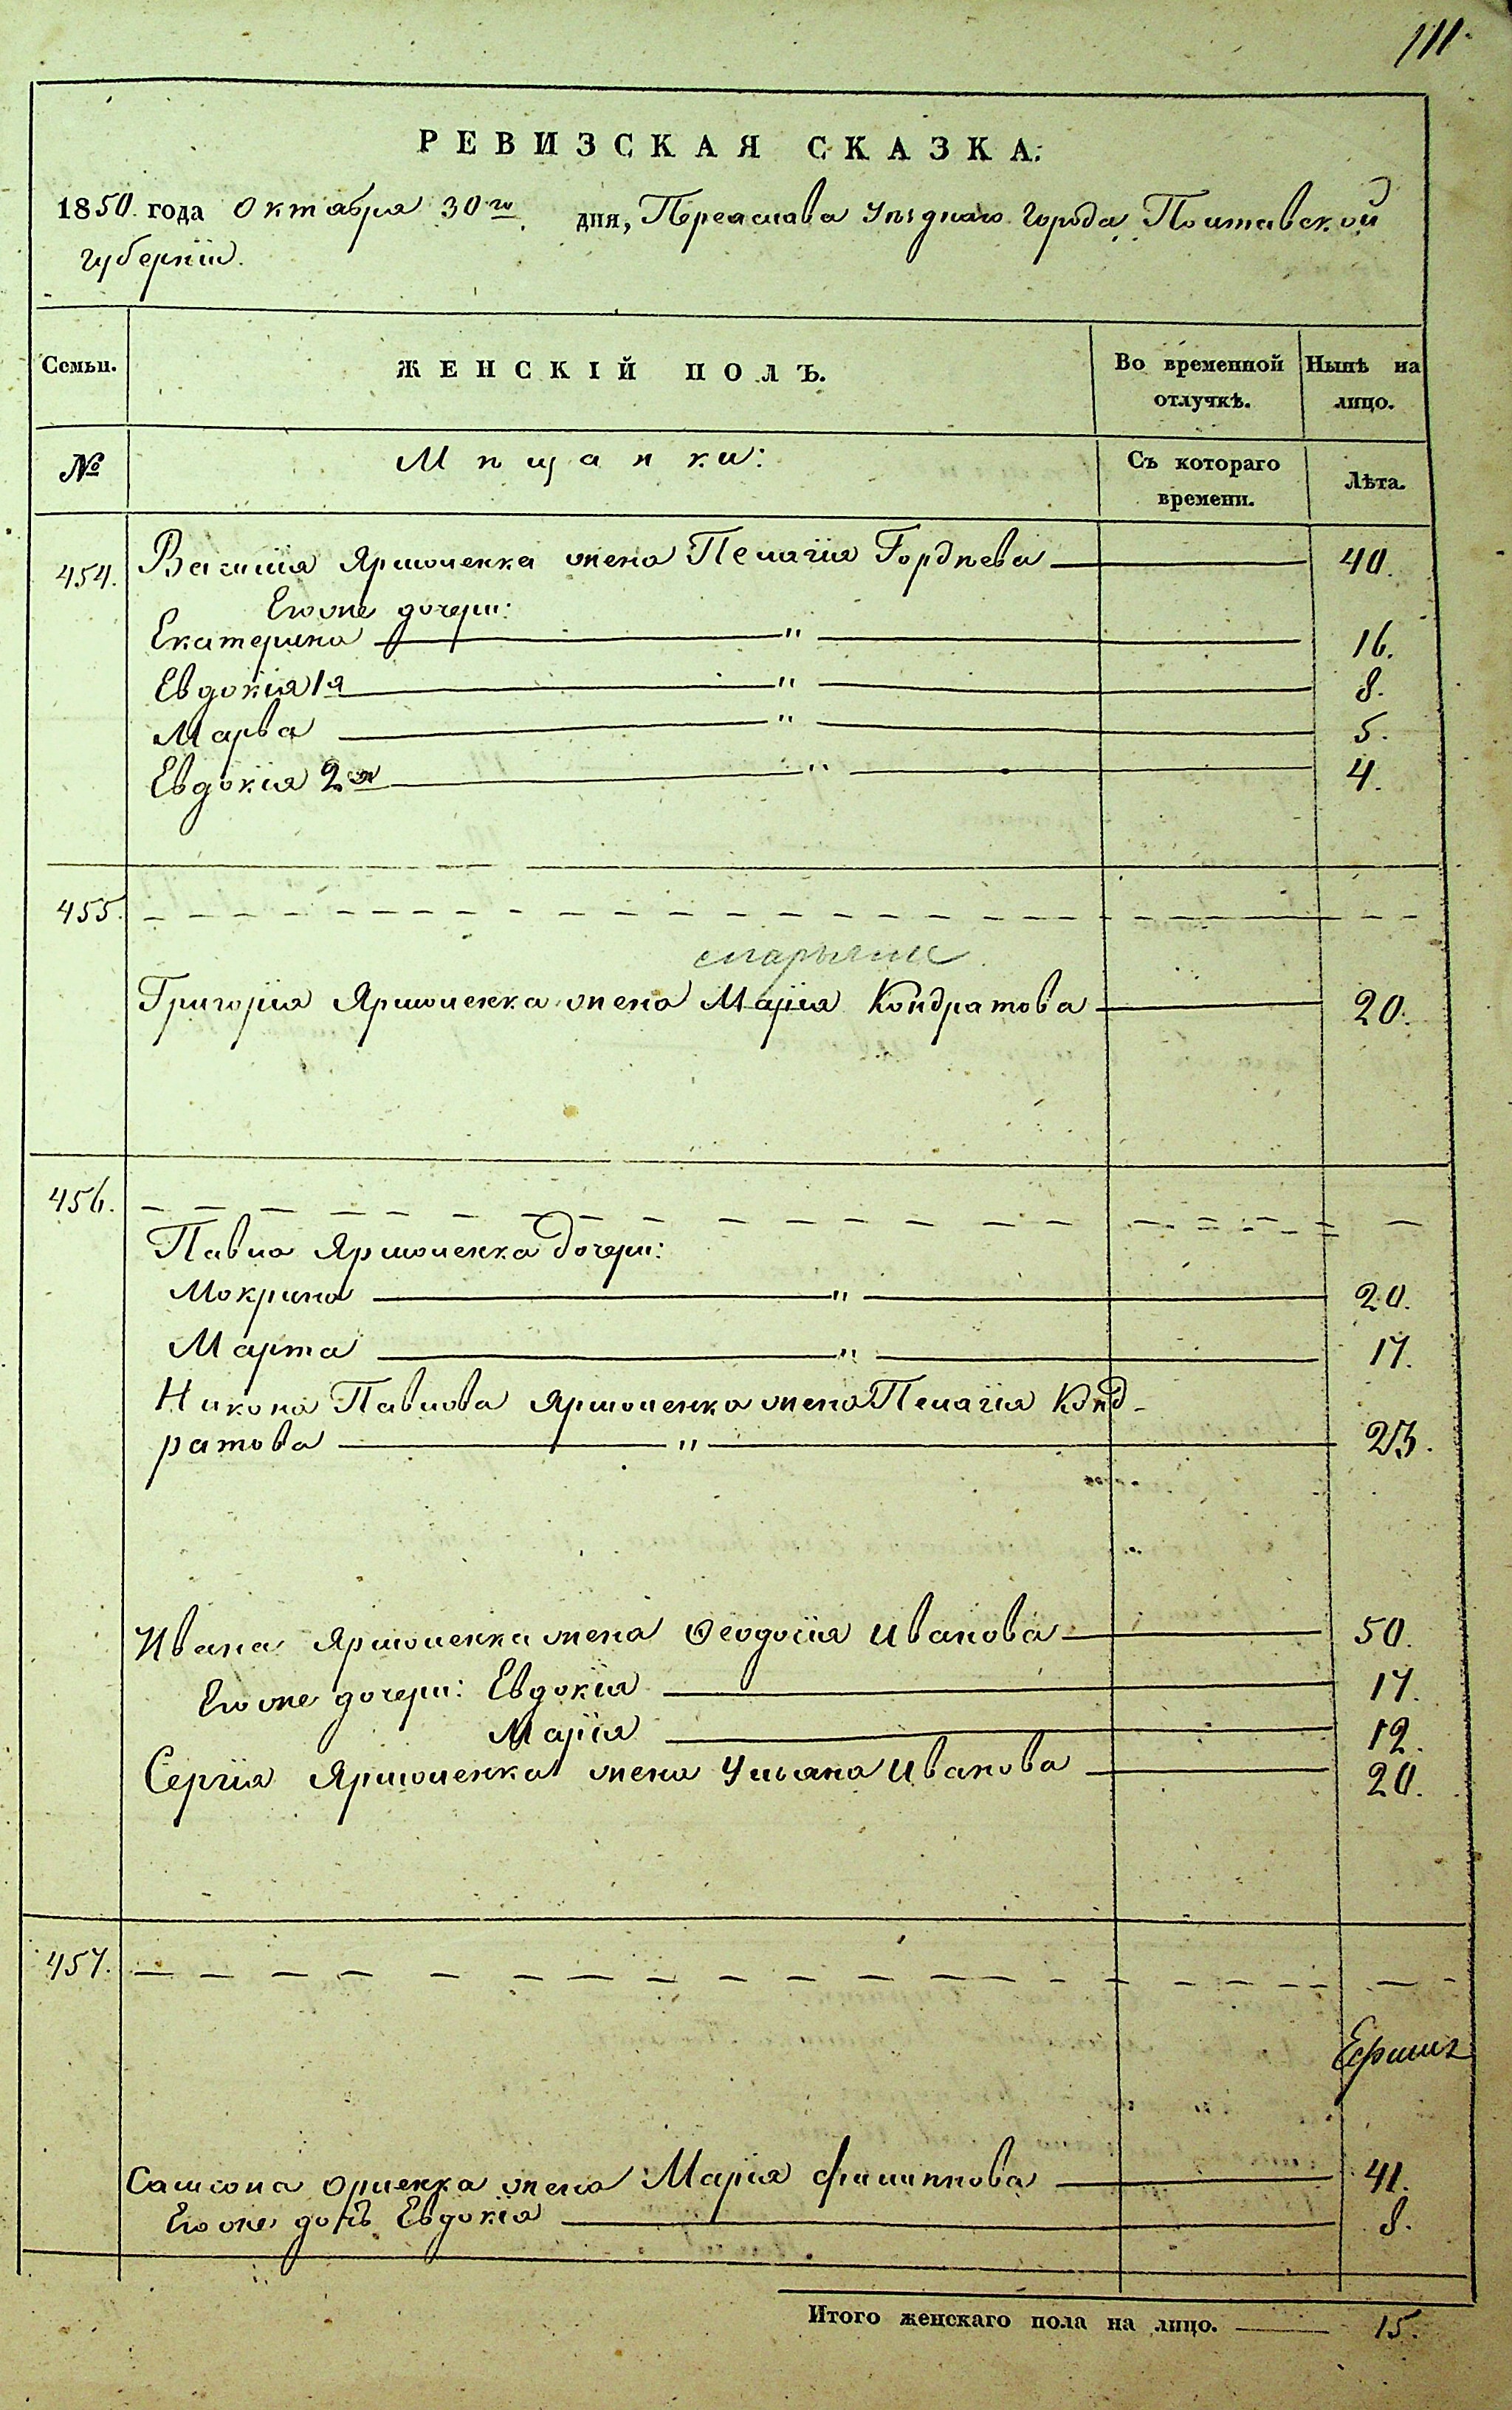 111.
РЕВИЗСКАЯ СКАЗКА:
1850. года Октября 30го дня, Переяслава Уѣзднаго Города Полтавской
Губерніи.
Семьи.
ЖЕНСКІЙ ПОЛЪ.
Во временной
отлучкѣ.
Нынѣ на
лицо.
№
Мѣщанки:
Съ котораго
времени.
Лѣта.
454. Василія Ярмоленка жена Пелагія Гордѣева 40.
Егоже дочери:
Екатерина " 16.
Евдокія 1я " 8.
Марѳа " 5.
Евдокія 2я " 4.
455.
Григорія Ярмоленка жена Марія Кондратова 20.
456.
Павла Ярмоленка дочери:
Мокрина " 20.
Марта " 17.
Никона Павлова Ярмоленка жена Пелагія Конд-
ратова " 23.
Ивана Ярмоленка жена Ѳеодосія Иванова 50.
Егоже дочери: Евдокія 17.
Марія 12.
Сергія Ярмоленка жена Ульяна Иванова 20.
457.
Самсона Орленка жена Марія Филиппова 41.
Егоже дочь Евдокія 8.
Итого женскаго пола на лицо. 15.